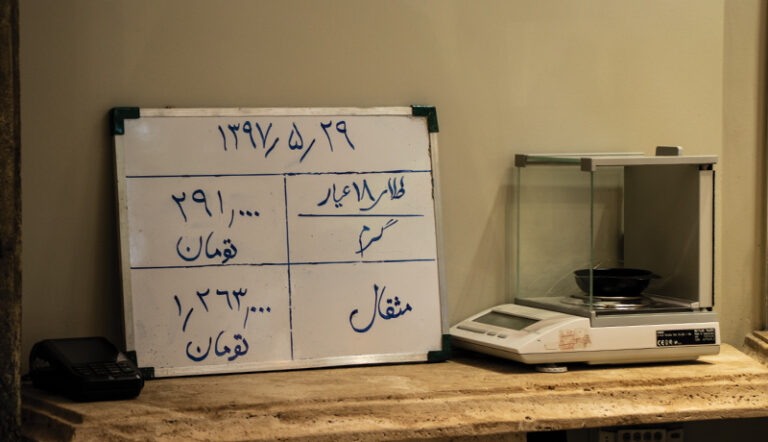 ۱۳۹۷/۵/۲۹
طلای ۱۸ عیار
گرم
۲۹۱,۰۰۰
تومان
مثقال
۱,۲۶۳,۰۰۰
تومان